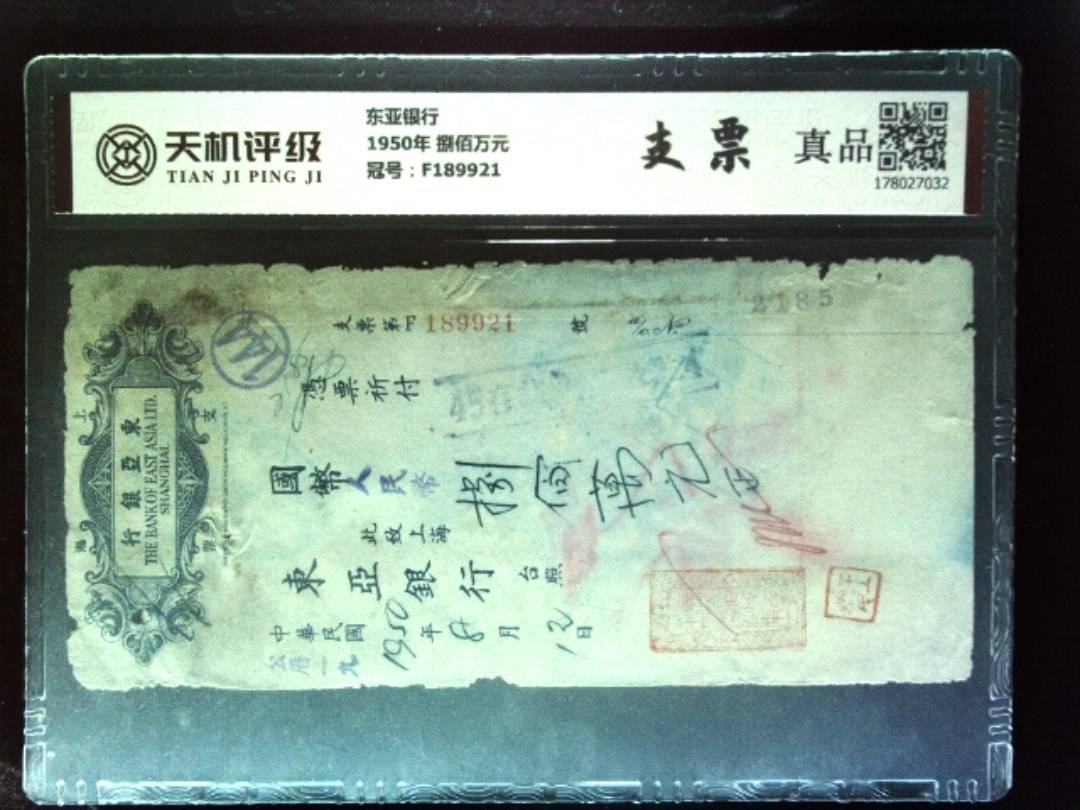 天机评级
TIAN JI PING JI
东亚银行
1950年 捌佰万元
冠号：F189921
支票
真品
178027032
2185
支票第F189921號
144
憑票祈付
國幣人民幣捌佰萬元正
此致上海
東亞銀行台照
中華民國1950年8月12日
公曆一九
東亞銀行
THE BANK OF EAST ASIA LTD.
SHANGHAI
上海
支票